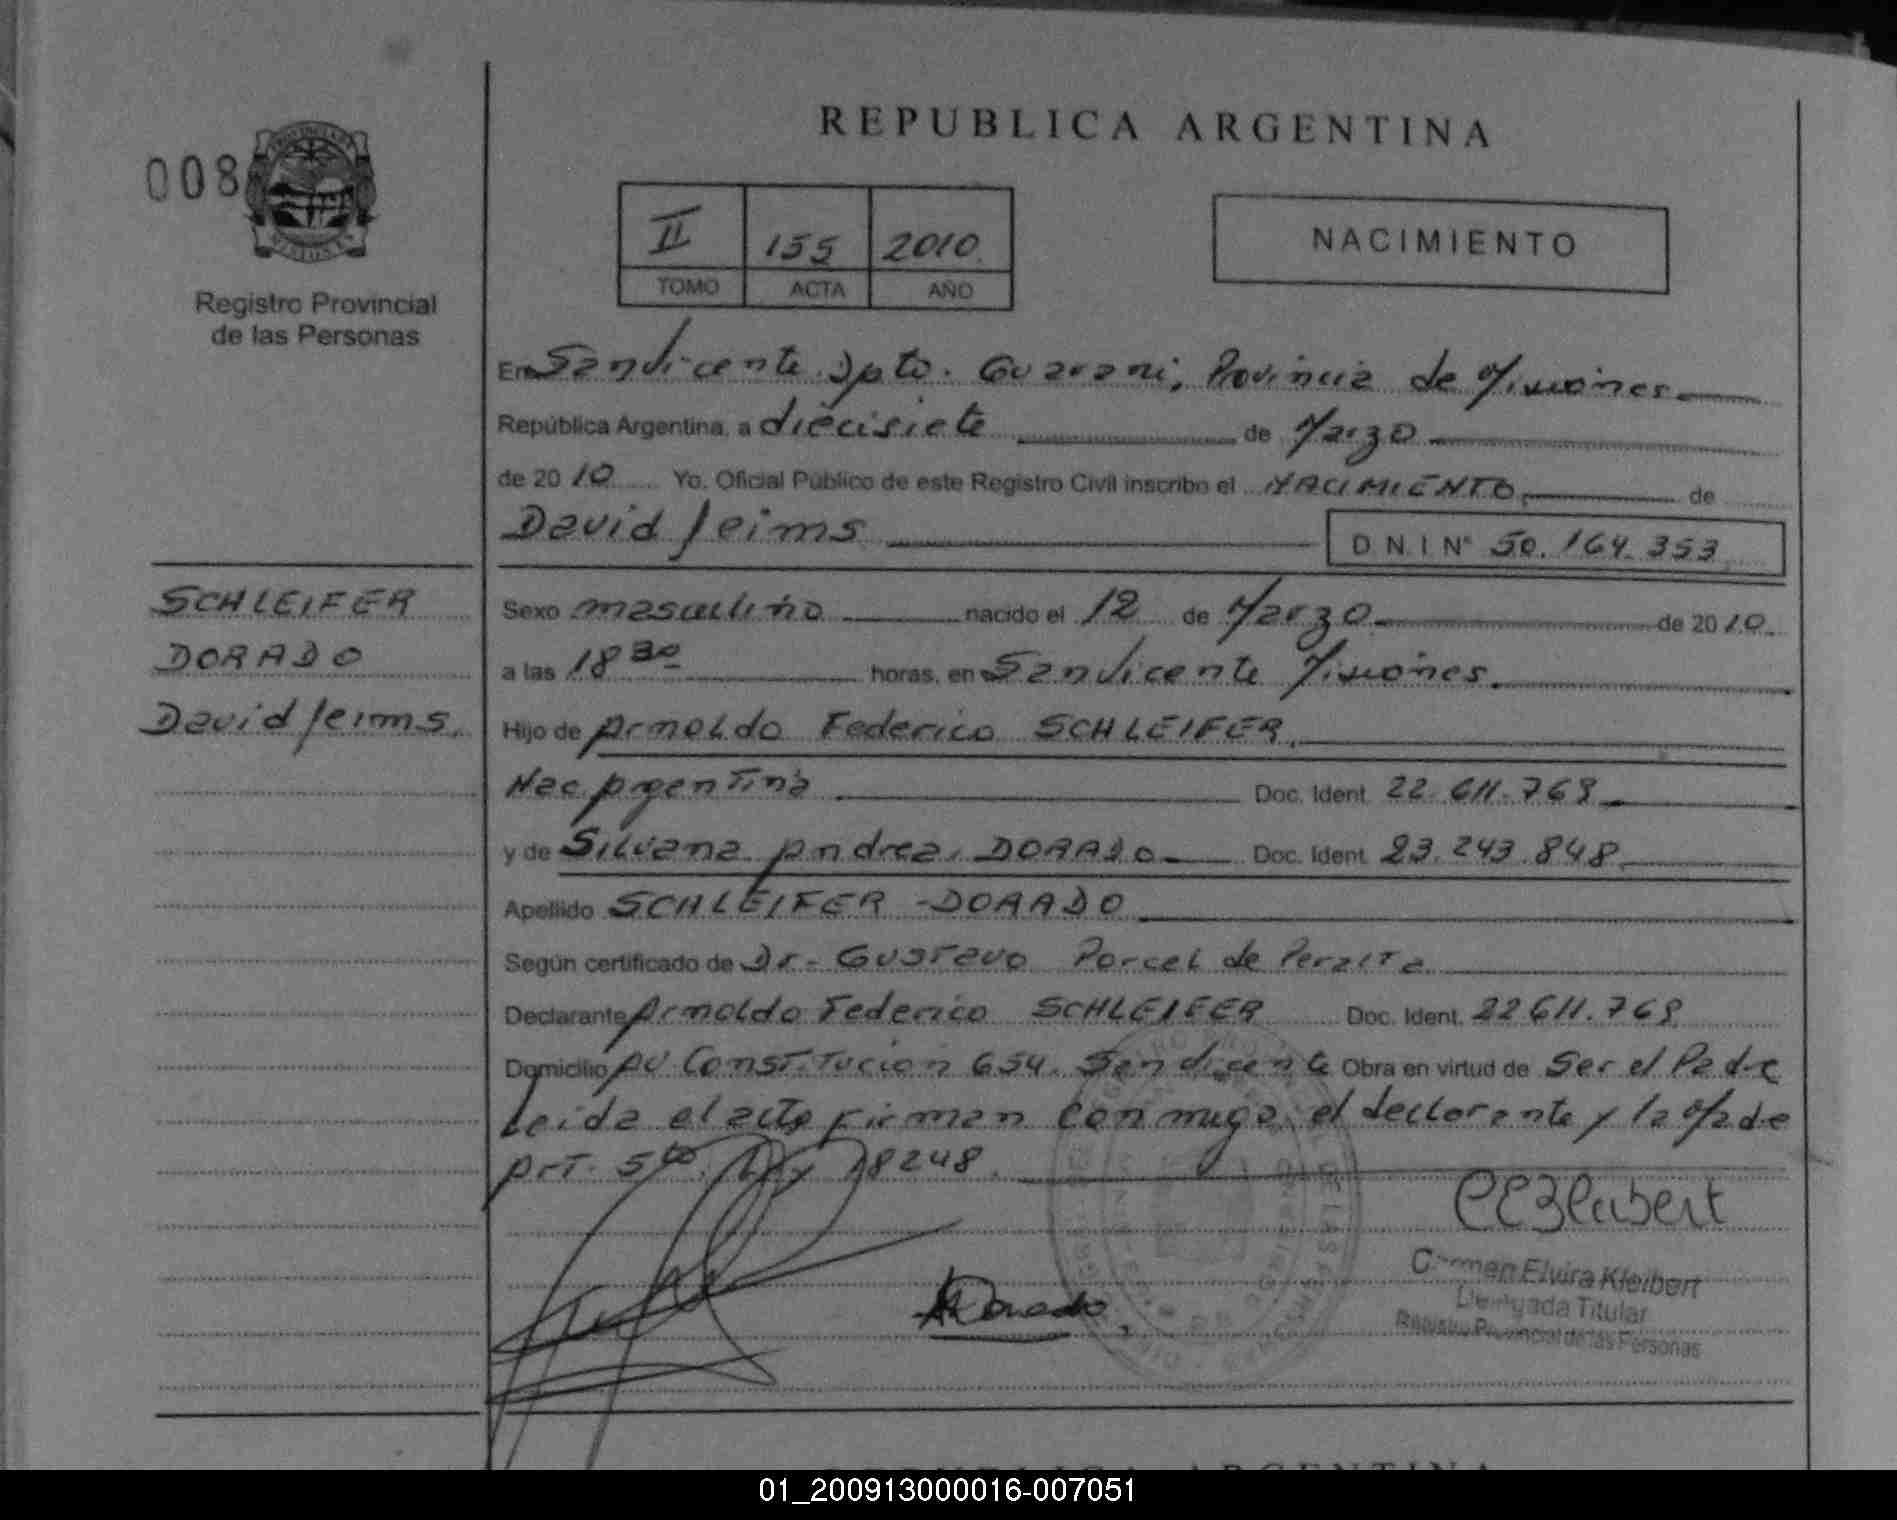 REPUBLICA ARGENTINA
008
II 155 2010
TOMO ACTA AÑO
NACIMIENTO
Registro Provincial
de las Personas
En San Vicente Dpto. Guarani, Provincia de Misiones
República Argentina, a diecisiete de Marzo
de 2010 Yo, Oficial Público de este Registro Civil inscribo el NACIMIENTO de
David Jeims D.N.I Nº 50.164.353
SCHLEIFER
DORADO
David Jeims.
Sexo masculino nacido el 12 de Marzo de 2010.
a las 18 30 horas, en San Vicente Misiones.
Hijo de Arnoldo Federico SCHLEIFER.
Nac. Argentina Doc. Ident. 22.611.768
y de Silvana Andrea DORADO Doc. Ident. 23.243.848
Apellido SCHLEIFER - DORADO
Según certificado de Dr. Gustavo Porcel de Peralta
Declarante Arnoldo Federico SCHLEIFER Doc. Ident. 22611.768
Domicilio Av Constitucion 654. San Vicente Obra en virtud de Ser el Padre
Leida el acta Firman conmigo el declarante y la Madre
Art. 5to. Ley 18248.
CEKleibert
Carmen Elvira Kleibert
Delegada Titular
Registro Provincial de las Personas
01_200913000016-007051